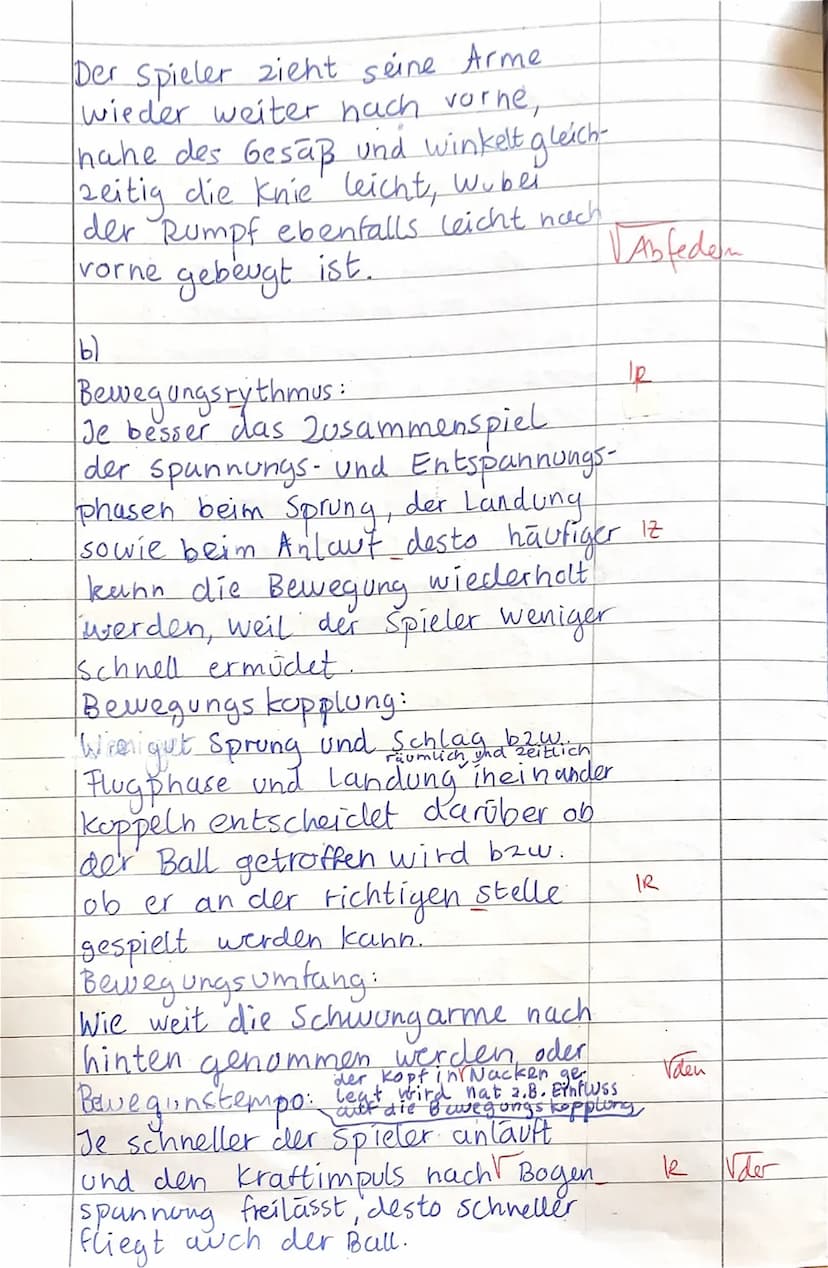 Der Spieler zieht seine Arme
wieder weiter nach vorne,
nahe des Gesäß und winkelt gleich-
zeitig die Knie leicht, wobei
der Rumpf ebenfalls leicht nach
√Abfedern
vorne gebeugt ist.
b)
IR
Bewegungsrythmus:
Je besser das Zusammenspiel
der Spannungs- und Entspannungs-
phasen beim Sprung, der Landung
sowie beim Anlauf desto häufiger IZ
kann die Bewegung wiederholt
werden, weil der Spieler weniger
schnell ermüdet.
Bewegungskopplung:
Wie gut Sprung und Schlag bzw.
räumlich und zeitlich
Flugphase und Landung ineinander
koppeln entscheidet darüber ob
der Ball getroffen wird bzw.
ob er an der richtigen stelle IR
gespielt werden kann.
Bewegungsumfang:
Wie weit die Schwungarme nach
hinten genommen werden, oder
der Kopf in√Nacken ge- √den
Bewegunstempo: legt wird hat z.B. Einfluss
auf die Bewegungskopplung
Je schneller der Spieler anläuft
und den Kraftimpuls nach√Bogen IR √der
spannung freilässt, desto schneller
fliegt auch der Ball.